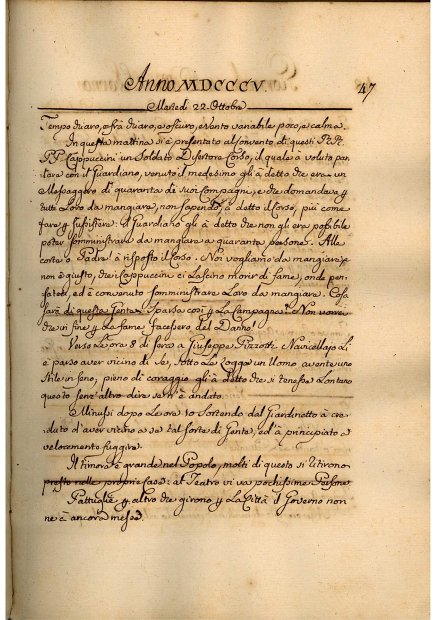 Anno MDCCCV.
47
Martedì 22 Ottobre
Tempo chiaro, e frà chiaro, e oscuro, e Vento variabile poco, e calma.
In questa mattina si è presentato al Convento di questi PP.PP.
Cappuccini un Soldato Disertore Corso, il quale à voluto par-
lare con il Guardiano, venuto il medesimo gli à detto che era un
Messaggero di quaranta di suoi Compagni, e che domandava p
tutti Loro da mangiare, non sapendo, à detto il Corso, più come
fare p sussistere: il Guardiano gli à detto che non gli era possibile
poter somministrare da mangiare a quaranta persone. Alle
corte o Padre à risposto il Corso. Noi vogliamo da mangiare, e
non è giusto, che i Cappuccini ci Lascino morir di fame, onde pen-
sateci, ed è convenuto somministrare Loro da mangiare. Cosa
sarà di questa Gente Sparsa così p La Campagna? Non vorrei
che in fine p La fame facessero del Danno!
Verso Le ore 8 di sera a Giuseppe Pizzotti Navicellajo Li
è parso aver vicino di Se, sotto Le Logge un Uomo avente uno
Stile in seno, pieno di coraggio gli à detto che si tenesse Lontano
questo senz'altro dire se n'è andato.
Minussi dopo Le ore 10 sortendo dal Giardinetto à cre-
duto d'aver vicino a se tal sorte di Gente, ed à principiato a
velocemente fuggire
Il timore è grande nel Popolo, molti di questo si ritirono
presto nelle proprie case: al Teatro vi va pochissime Persone
Pattuglie p altro che girono p La Città il Governo non
ne à ancora messe.